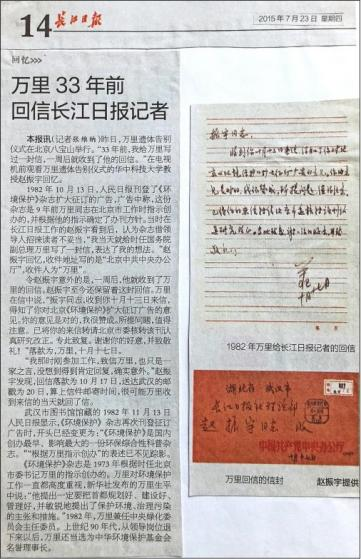 14 长江日报
2015年7月23日 星期四
回忆>>>
万里 33 年前
回信长江日报记者
本报讯(记者张维纳)昨日,万里遗体告别
仪式在北京八宝山举行。“33年前,我给万里写
过一封信,一周后就收到了他的回信。”在电视
机前观看万里遗体告别仪式的华中科技大学教
授赵振宇回忆。
1982年10月13日,人民日报刊登了《环
境保护》杂志扩大征订的广告,广告中称,这份
杂志是9年前万里同志在北京市工作时指示创
办的,并根据他的指示确定了办刊方针。当时在
长江日报工作的赵振宇看到后,认为杂志借领
导人招徕读者不妥当,“我当天就给时任国务院
副总理万里写了一封信,表达了我的想法。”赵振
宇回忆,收件地址写的是“北京市中共中央办公
厅”,收件人为“万里”。
令赵振宇意外的是,一周后,他就收到了万
里的回信,赵振宇至今还保留着这封回信。万里
在信中说,“振宇同志,收到你十月十三日来信,
得知了你对北京《环境保护》扩大征订广告的意
见,你的意见是对的,我很赞成,所提问题,值得
注意。已将你的来信转请北京市委核转该刊认
真研究改正。专此致复。谢谢你的好意,并致敬
礼!”落款为,万里,十月十七日。
“我那时刚参加工作,致信万里,也只是一
家之言,没想到得到肯定回复,确实意外。”赵振
宇发现,回信落款为10月17日,送达武汉的邮
戳为20日,算上信件邮寄时间,很可能万里收
到来信的当天就回了信。
武汉市图书馆馆藏的1982年11月13日
人民日报显示,《环境保护》杂志再次刊登征订
广告时,开头已经变更为:“《环境保护》是国内
创办最早、影响最大的一份环保综合性科普杂
志。”“根据万里指示创办”的表述已不见踪影。
《环境保护》杂志是1973年根据时任北京
市委书记万里的指示创办的。万里对环境保护
工作一直都高度重视,新华社发布的万里生平
中说:“他提出一定要把首都规划好、建设好、
管理好,并敏锐地提出了保护环境、治理污染
的主张和措施。”1982年,万里兼任中央绿化委
员会主任委员。上世纪90年代,从领导岗位退
下来以后,万里还当选为中华环境保护基金会
名誉理事长。
振宇同志:
万里
十月十七日
1982年万里给长江日报记者的回信
湖北省 武汉市
长江日报社评论部
赵振宇 同志
中国共产党中央办公厅
万里回信的信封 赵振宇提供